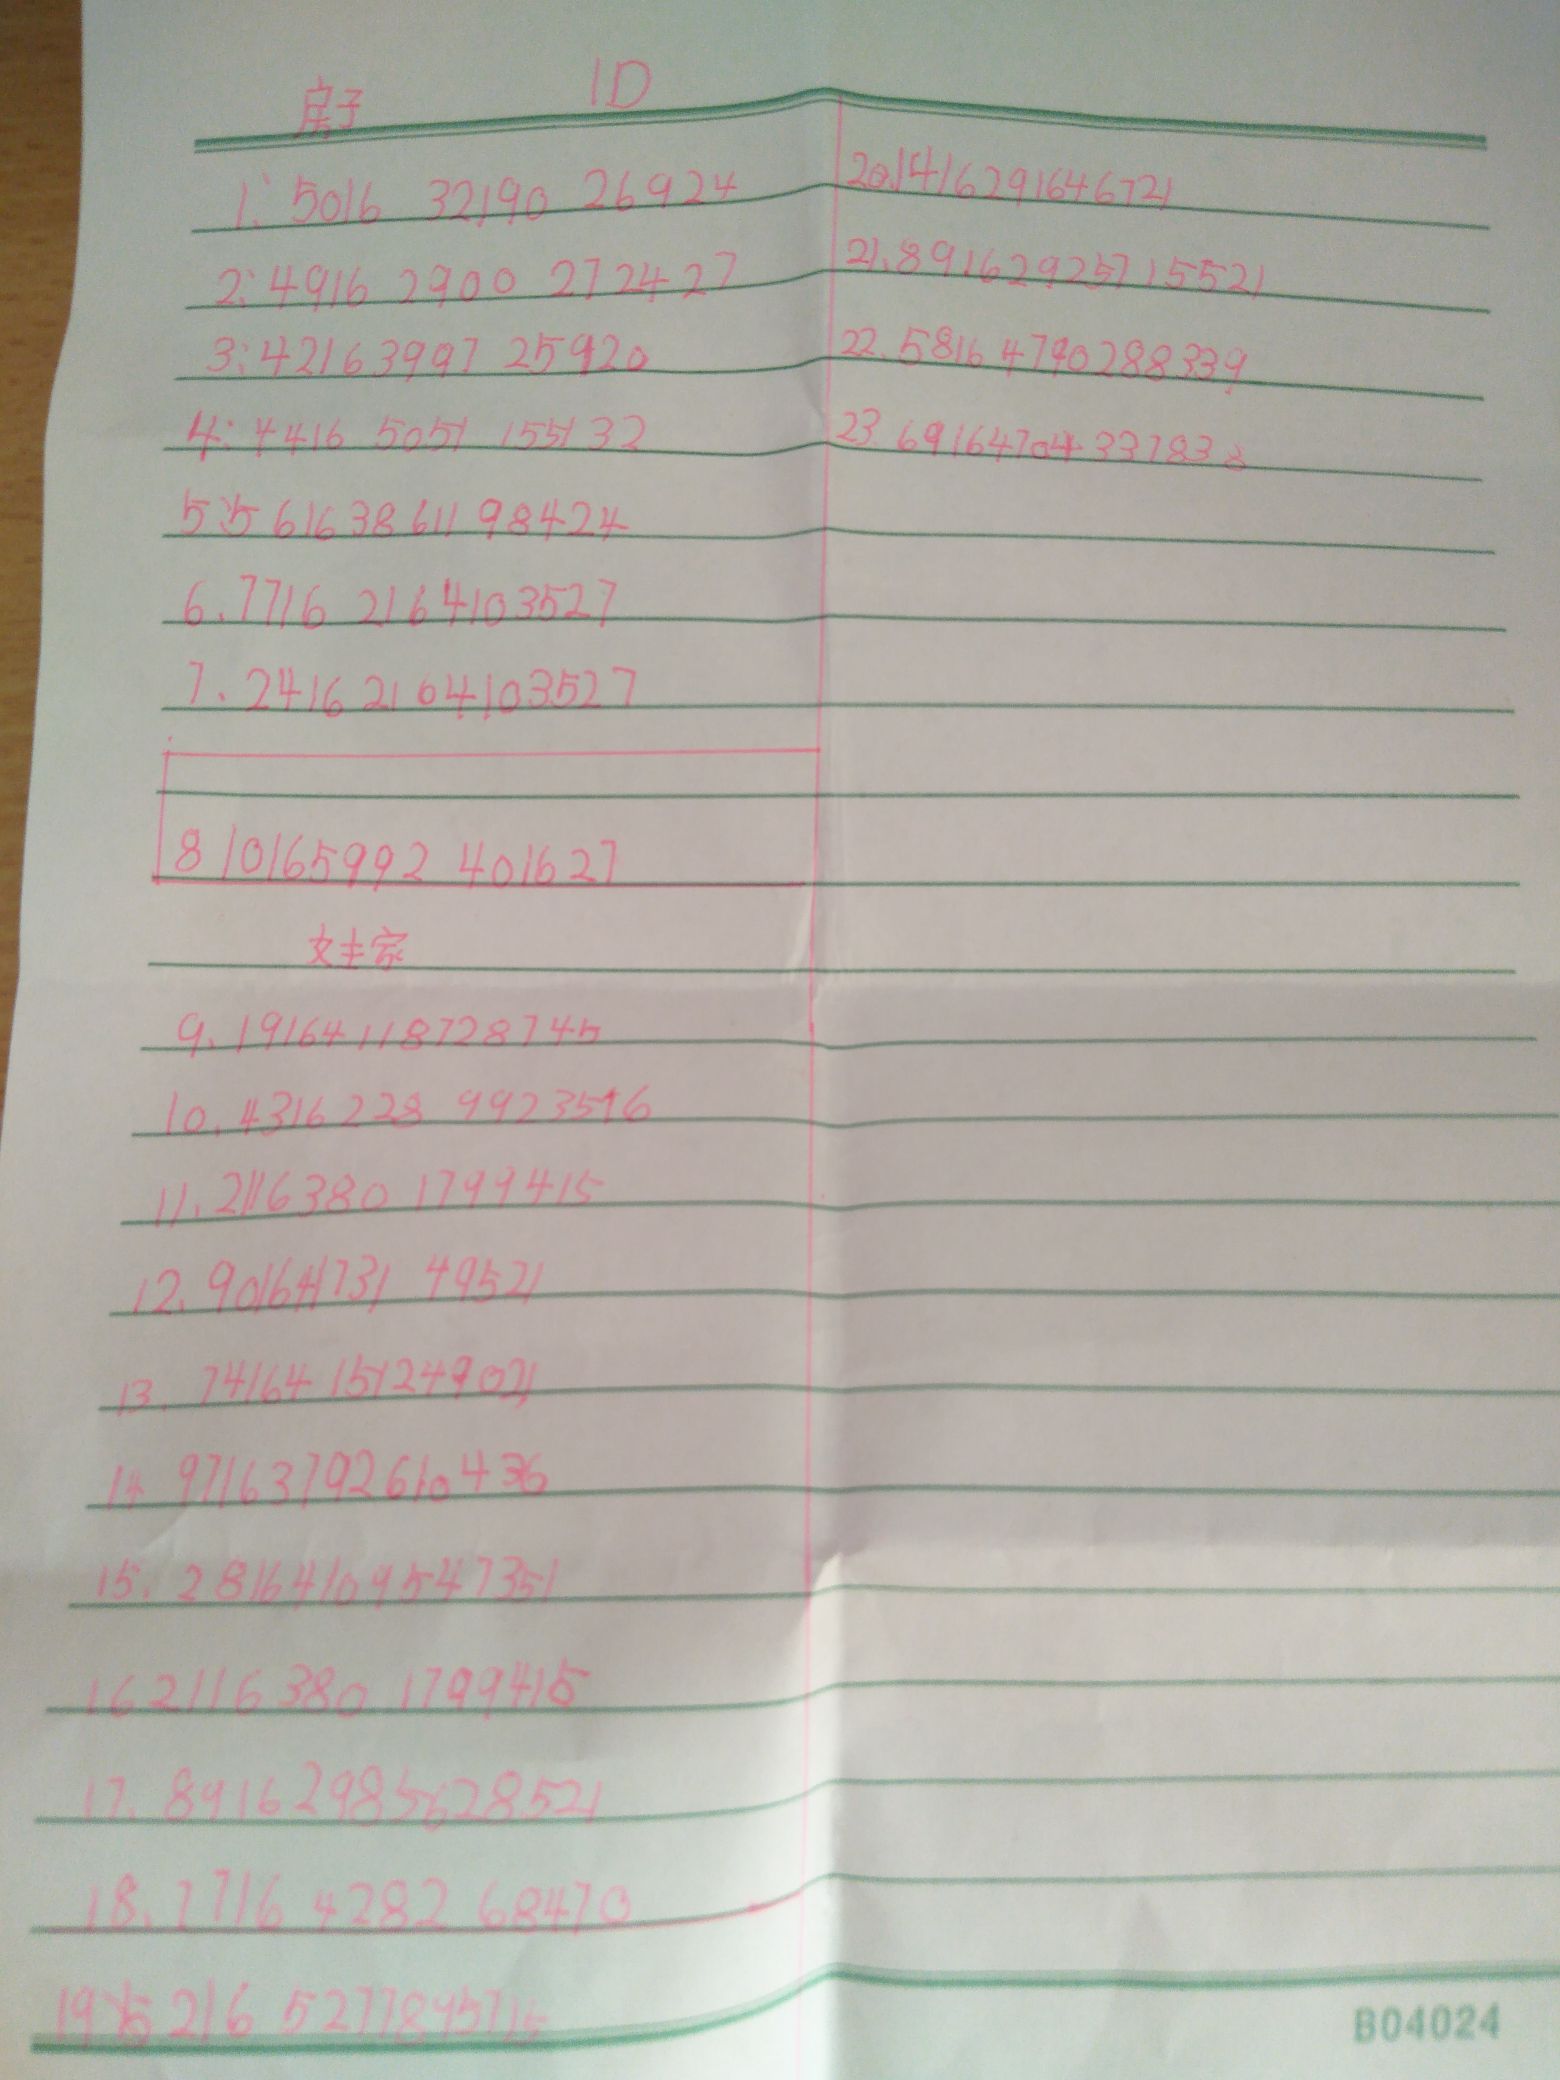 房子 ID
1: 5016 32190 26924
2: 4916 2900 272427
3: 42163997 25920
4: 4416 5051 155132
5: 5616 38611 98424
6. 7716 2164103527
7. 2416 2164103527
8 10165992 401627
女主家
9. 19164118728745
10. 4316228 9923516
11. 2116380 1799415
12. 901641731 49521
13. 74164 151249021
14 97163792610436
15. 28164109547351
16 2116380 1799415
17. 89162985628521
18. 7716 4282 68470
19: 5216
20. 1416291646721
21. 89162925715521
22. 5816 4790288339
23 69164704337838
B04024